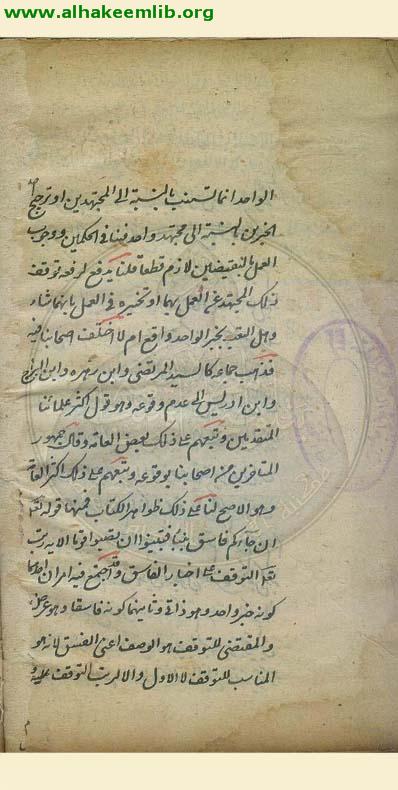 www.alhakeemlib.org
الواحد انما تستتب بالنسبة الى المجتهدين او ترجح احد
الخبرين بالنسبة الى مجتهد واحد فتنافي الحكمين ووجوب
العمل بالنقيضين لازم قطعا قلنا يدفع لرفعه توقف
ذلك المجتهد عن العمل بهما او تخييره في العمل بايهما شاء
وهل التعبد بخبر الواحد واقع ام لا اختلف اصحابنا فيه
فذهب جماعة كالسيد المرتضى وابن زهره وابن البراج
وابن ادريس الى عدم وقوعه وهو قول اكثر علمائنا
المتقدمين وتبعهم على ذلك بعض العامة وقال جمهور
المتاخرين من اصحابنا بوقوعه وتبعهم على ذلك اكثر العامة
وهو الاصح لنا على ذلك ظواهر الكتاب فمنها قوله تعالى
ان جاءكم فاسق بنبأ فتبينوا ان تصيبوا قوما الاية رتب
تعالى التوقف على اخبار الفاسق وقد اجتمع فيه امران احدهما
كونه خبر واحد وهو ذاتي وثانيهما كونه فاسقا وهو عرضي
والمقتضي للتوقف هو الوصف اعني الفسق لانه هو
المناسب للتوقف لا الاول والا لرتب التوقف عليه